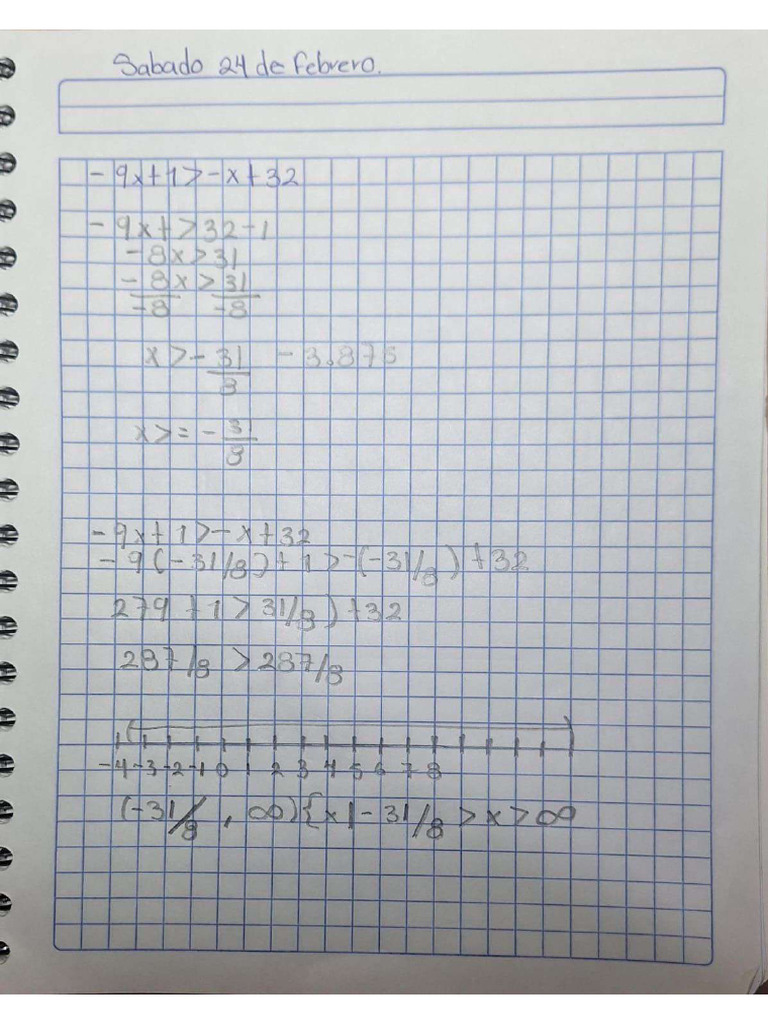 Sabado 24 de febrero.
-9x+1>-x+32
-9x+>32-1
-8x>31
-8x>31
-8 -8
x>-31 -3.875
8
x>=-31
8
-9x+1>-x+32
-9(-31/8)+1>-(-31/8)+32
279+1>31/8)+32
287/8>287/8
-4 -3 -2 -1 0 1 2 3 4 5 6 7 8
(-31/8, ∞){x|-31/8>x>∞